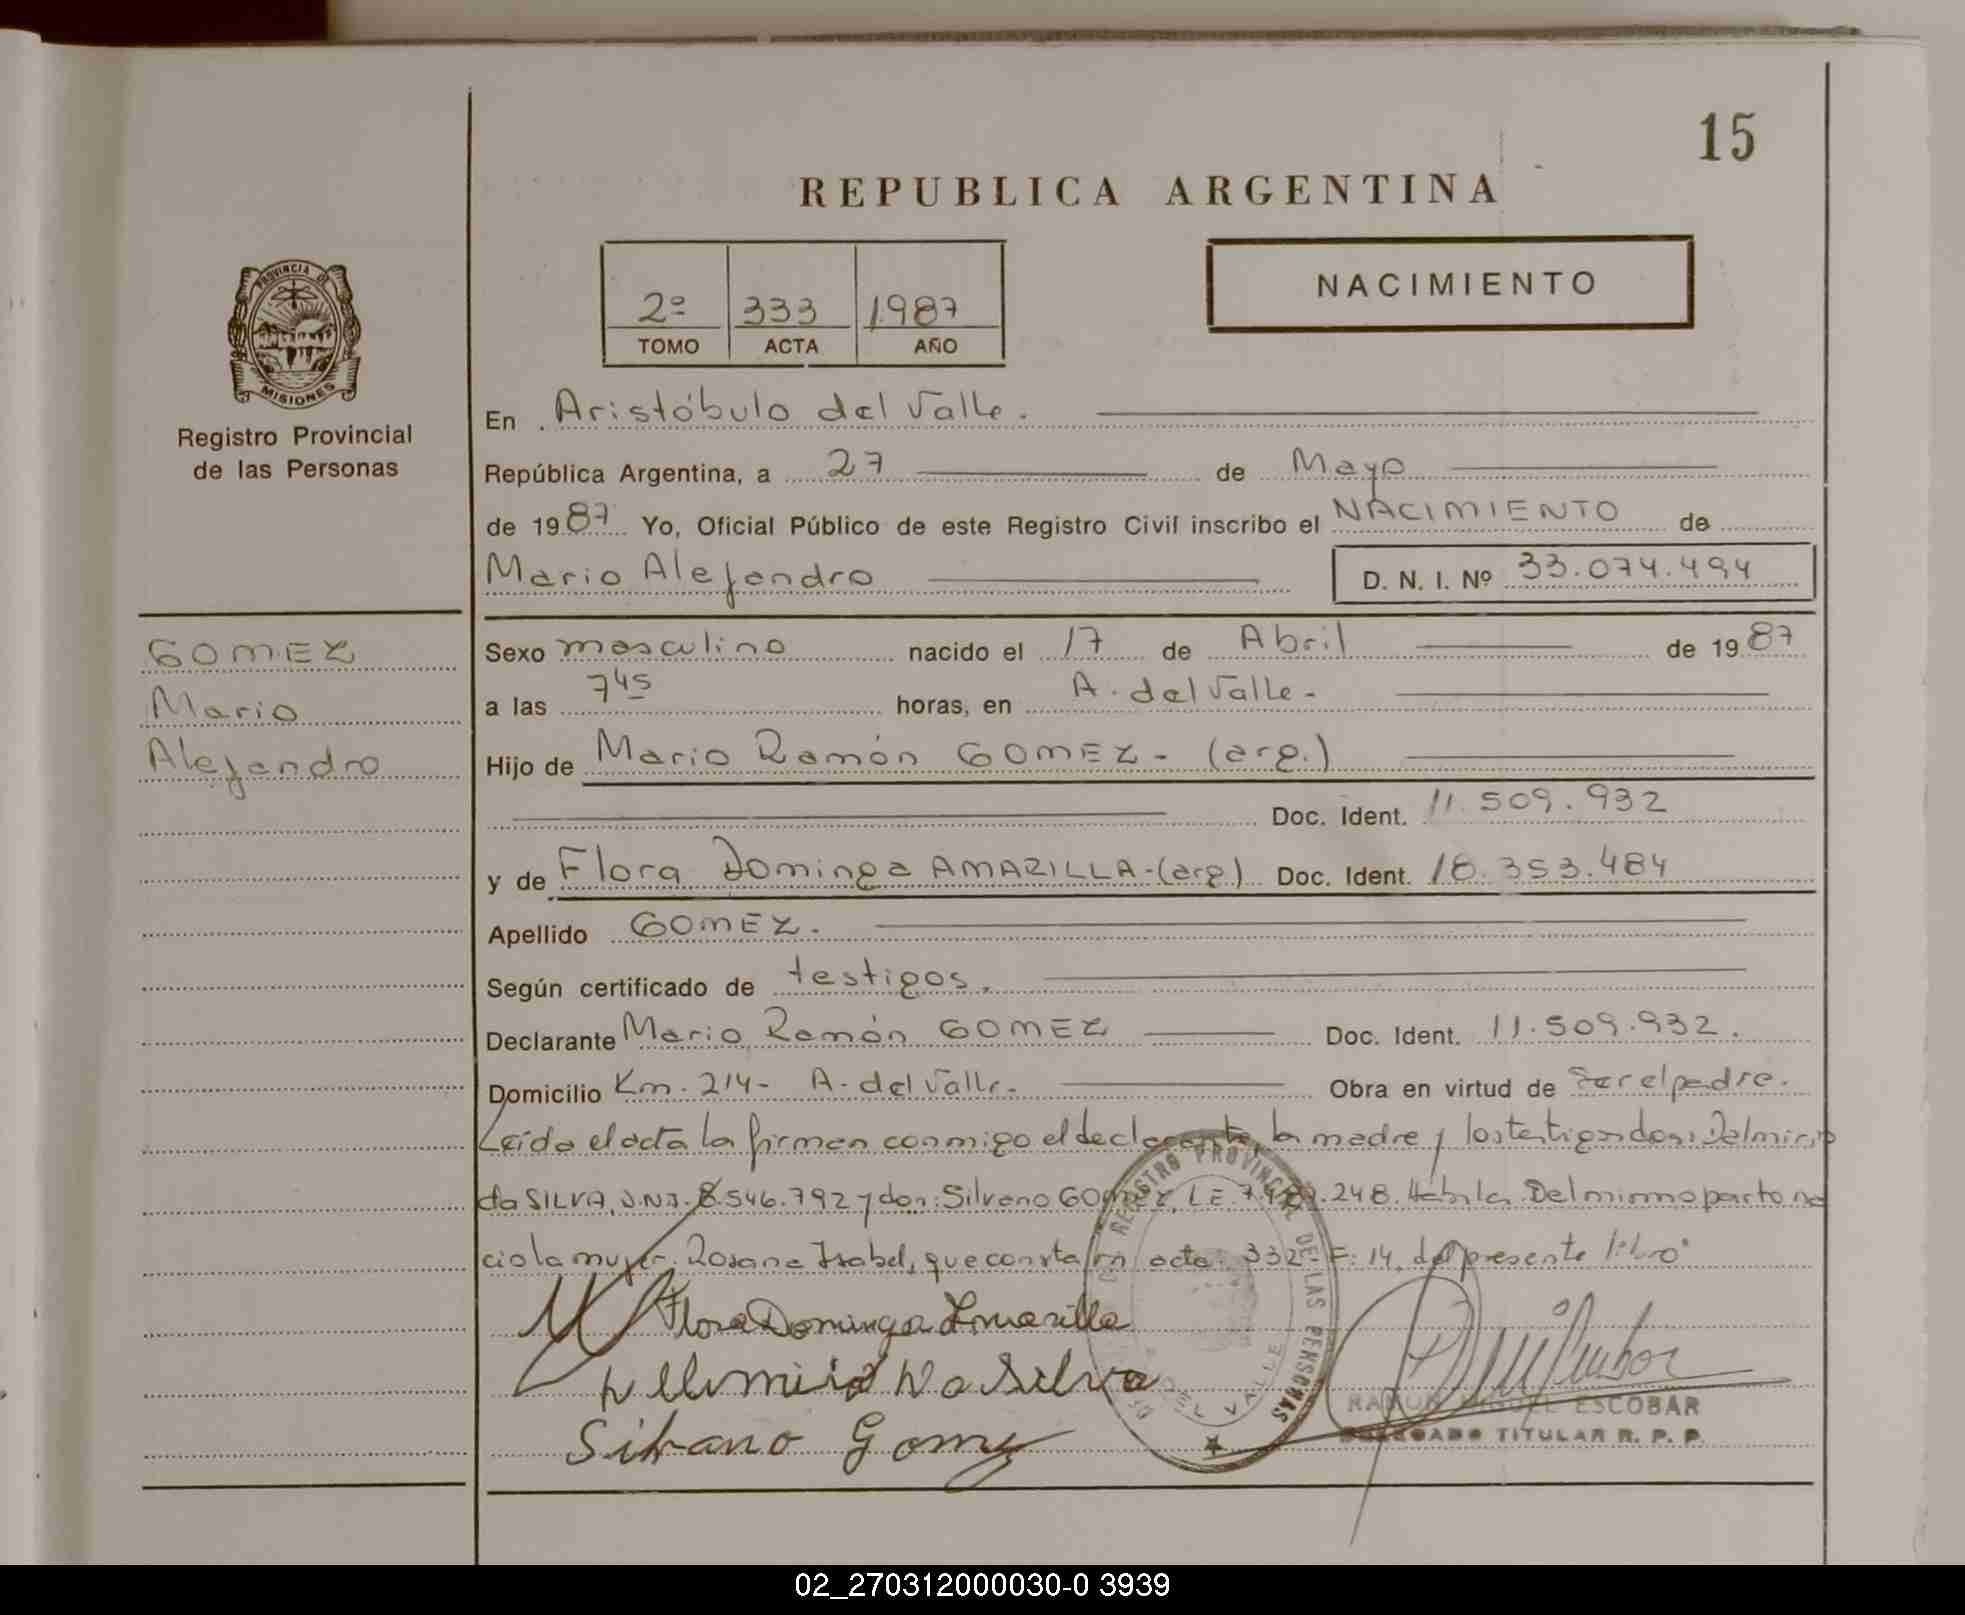 15
REPUBLICA ARGENTINA
2º 333 1987
TOMO ACTA AÑO
NACIMIENTO
PROVINCIA DE
MISIONES
Registro Provincial
de las Personas
GOMEZ
Mario
Alejandro
En Aristóbulo del Valle.
República Argentina, a 27 de Mayo
de 1987 Yo, Oficial Público de este Registro Civil inscribo el NACIMIENTO de
Mario Alejandro D. N. I. Nº 33.074.494
Sexo masculino nacido el 17 de Abril de 1987
a las 7 45 horas, en A. del Valle -
Hijo de Mario Ramón GOMEZ - (arg.)
Doc. Ident. 11.509.932
y de Flora Dominga AMARILLA - (arg) Doc. Ident. 18.353.484
Apellido GOMEZ.
Según certificado de testigos.
Declarante Mario Ramón GOMEZ Doc. Ident. 11.509.932.
Domicilio Km. 214 - A. del Valle. Obra en virtud de ser el padre.
Leída el acta la firman conmigo el declarante, la madre y los testigos don: Delmirio
da SILVA, D.N.I. 8.546.792 y don: Silvano GOMEZ, L.E. 248. Hábiles. Del mismo parto na
cio la mujer. Rosana Isabel, que consta en acta: 332 F: 14, del presente libro
Flora Dominga Amarilla
Da Silva
Silvano Gomez
REGISTRO PROVINCIAL DE LAS PERSONAS
DEL VALLE
RAMON MIGUEL ESCOBAR
DELEGADO TITULAR R. P. P.
02_270312000030-0 3939